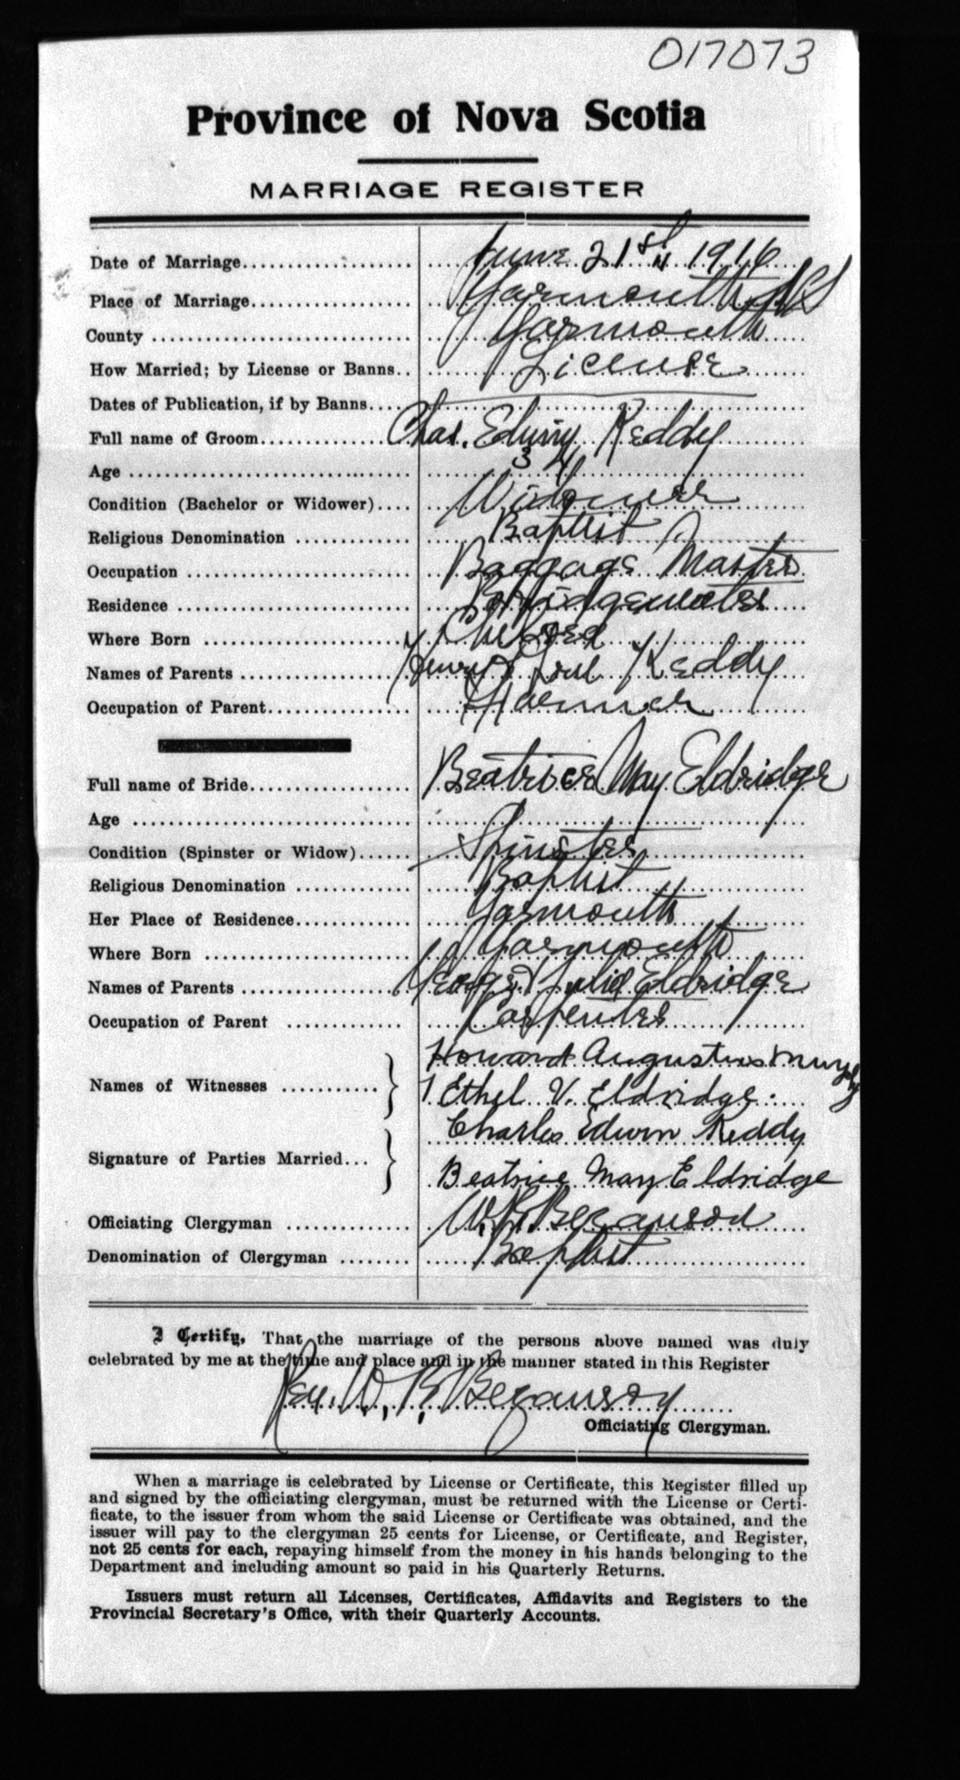 017073
Province of Nova Scotia
MARRIAGE REGISTER
Date of Marriage.................... June 21st 1916
Place of Marriage.................... Yarmouth NS
County .................... Yarmouth
How Married; by License or Banns.. License
Dates of Publication, if by Banns....
Full name of Groom.................... Chas. Edwin Keddy
Age .................... 34
Condition (Bachelor or Widower).... Widower
Religious Denomination .............. Baptist
Occupation .................... Baggage Master
Residence .................... Bridgewater
Where Born ....................
Names of Parents .................... Henry & Keddy
Occupation of Parent.................... Farmer
Full name of Bride.................... Beatrice May Eldridge
Age ....................
Condition (Spinster or Widow)...... Spinster
Religious Denomination .............. Baptist
Her Place of Residence.............. Yarmouth
Where Born .................... Yarmouth
Names of Parents .................... George & Julia Eldridge
Occupation of Parent .............. Carpenter
Names of Witnesses ............ } Howard Augustus
Ethel V. Eldridge.
Signature of Parties Married... } Charles Edwin Keddy
Beatrice May Eldridge
Officiating Clergyman .............. W. B. Bezanson
Denomination of Clergyman ........ Baptist
I Certify, That the marriage of the persons above named was duly
celebrated by me at the time and place and in the manner stated in this Register
Rev. W. B. Bezanson
Officiating Clergyman.
When a marriage is celebrated by License or Certificate, this Register filled up
and signed by the officiating clergyman, must be returned with the License or Certi-
ficate, to the issuer from whom the said License or Certificate was obtained, and the
issuer will pay to the clergyman 25 cents for License, or Certificate, and Register,
not 25 cents for each, repaying himself from the money in his hands belonging to the
Department and including amount so paid in his Quarterly Returns.
Issuers must return all Licenses, Certificates, Affidavits and Registers to the
Provincial Secretary's Office, with their Quarterly Accounts.